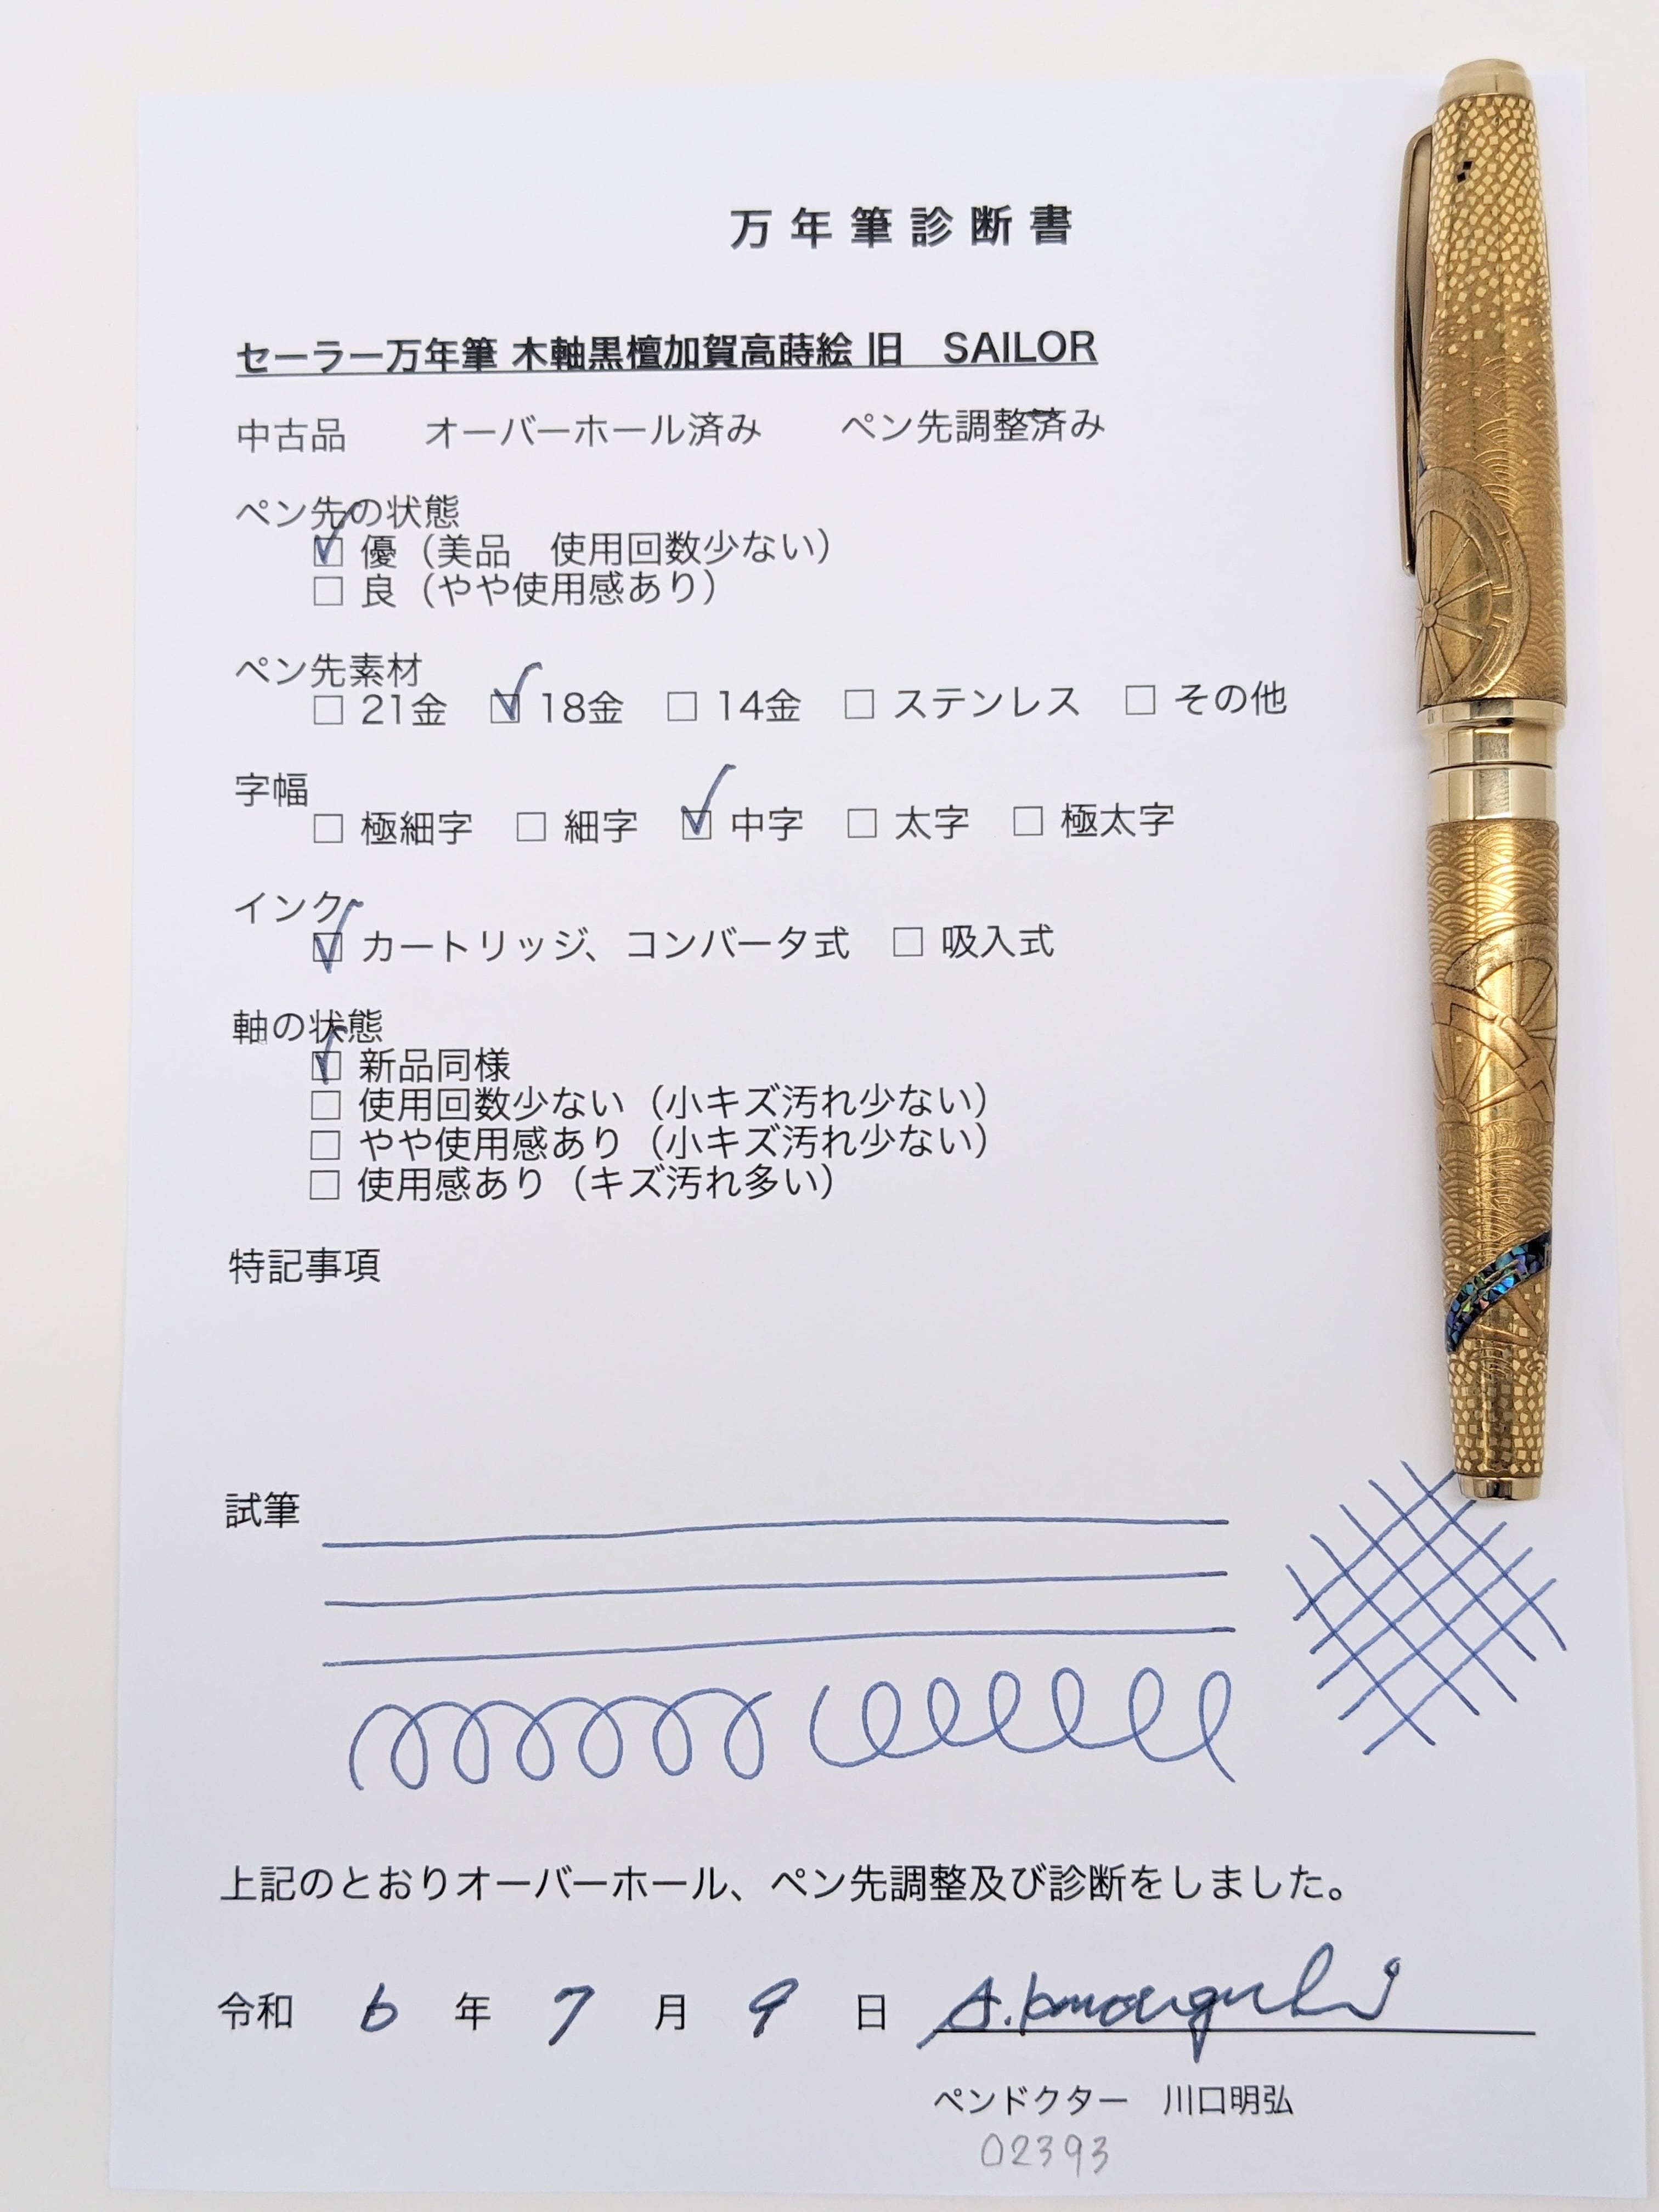 万年筆診断書
セーラー万年筆 木軸黒檀加賀高蒔絵 旧　SAILOR
中古品　　オーバーホール済み　　ペン先調整済み
ペン先の状態
☑ 優（美品　使用回数少ない）
☐ 良（やや使用感あり）
ペン先素材
☐ 21金　☑ 18金　☐ 14金　☐ ステンレス　☐ その他
字幅
☐ 極細字　☐ 細字　☑ 中字　☐ 太字　☐ 極太字
インク
☑ カートリッジ、コンバータ式　☐ 吸入式
軸の状態
☑ 新品同様
☐ 使用回数少ない（小キズ汚れ少ない）
☐ やや使用感あり（小キズ汚れ少ない）
☐ 使用感あり（キズ汚れ多い）
特記事項
試筆
上記のとおりオーバーホール、ペン先調整及び診断をしました。
令和 6 年 7 月 9 日 A.kawaguchi
ペンドクター　川口明弘
02393